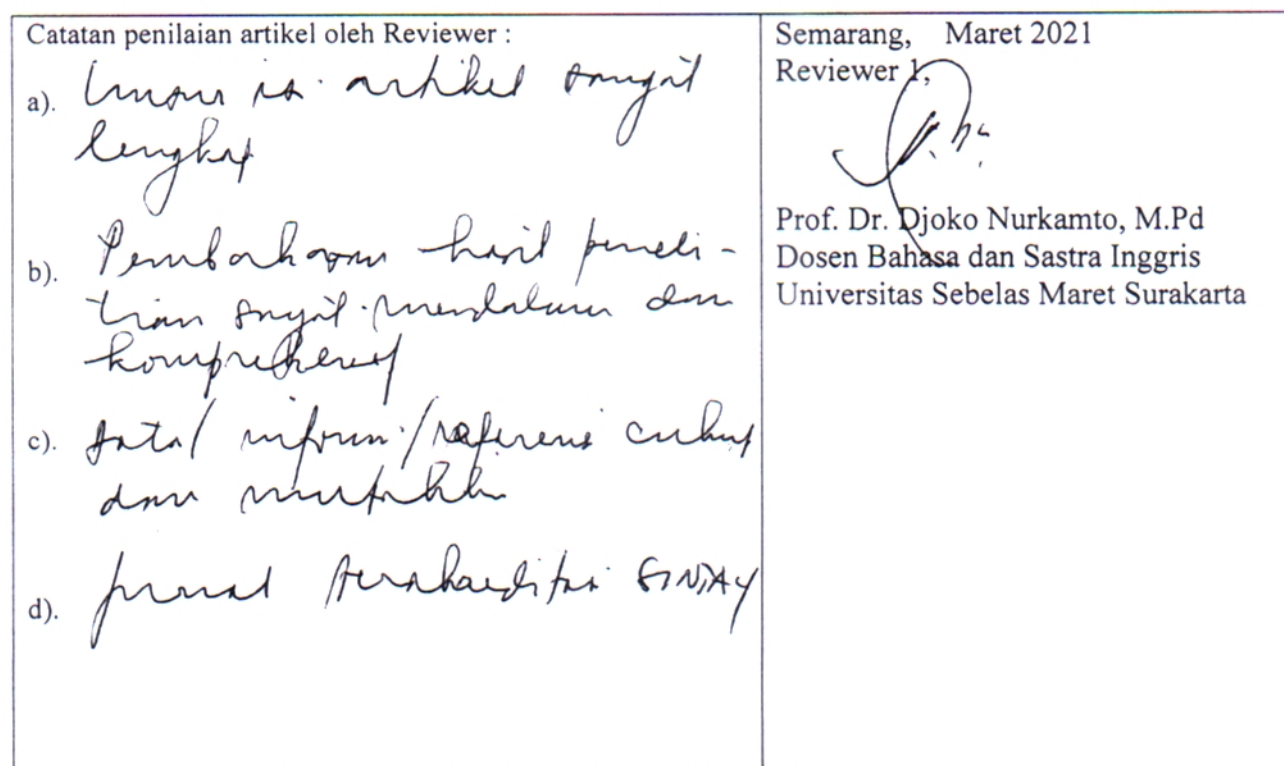 Catatan penilaian artikel oleh Reviewer :
a). Unsur isi artikel sangat
lengkap
b). Pembahasan hasil peneli-
tian sangat mendalam dan
komprehensif
c). data/ inform./referensi cukup
dan mutakhir
d). jurnal terakreditasi SINTA 4
Semarang, Maret 2021
Reviewer 1,
Prof. Dr. Djoko Nurkamto, M.Pd
Dosen Bahasa dan Sastra Inggris
Universitas Sebelas Maret Surakarta